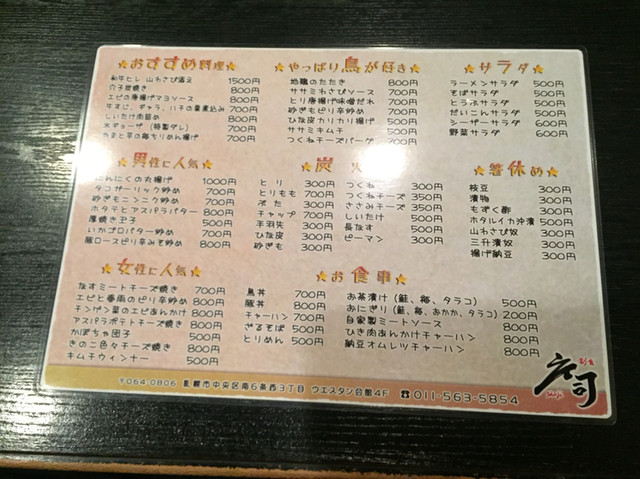 ★おすすめ料理★
和牛ヒレ 山わさび添え 1500円
穴子炭焼き 800円
エビの唐揚げマヨソース 800円
牛すじ、ギャラ、ハチの醤煮込み 700円
しいたけ肉詰め 800円
水ギョーザ（特製ダレ） 700円
たまと芋の鶏そぼろ揚げ 700円
★やっぱり鳥が好き★
地鶏のたたき 800円
ササミわさび焼き 500円
とり唐揚げ味噌だれ 700円
砂ぎもピリ辛炒め 700円
ひな皮カリカリ揚げ 500円
ササミキムチ 500円
つくねチーズバーグ 700円
★サラダ★
ラーメンサラダ 500円
そばサラダ 500円
とうふサラダ 500円
だいこんサラダ 500円
シーザーサラダ 600円
野菜サラダ 600円
★男性に人気★
にんにくの丸揚げ 1000円
タコガーリック炒め 700円
砂ぎもニンニク炒め 700円
ホタテとアスパラバター 800円
厚焼き玉子 500円
いかゴロバター炒め 700円
豚ロースピリ辛みそ炒め 800円
★炭 火★
とり 300円
とりもも 700円
ぶた 300円
チャップ 700円
手羽先 300円
ひな皮 300円
砂ぎも 300円
つくね 300円
つくねチーズ 350円
ささみチーズ 350円
しいたけ 500円
長なす 500円
ピーマン 300円
★箸休め★
枝豆 300円
漬物 300円
もずく酢 300円
ホタルイカ沖漬 500円
山わさび奴 300円
三升漬奴 300円
揚げ納豆 300円
★女性に人気★
なすミートチーズ焼き 700円
エビと春雨のピリ辛炒め 800円
チンゲン菜のエビあんかけ 800円
アスパラポテトチーズ焼き 800円
かぼちゃ団子 500円
きのこ色々チーズ焼き 800円
キムチウィンナー 500円
★お食事★
鳥丼 700円
豚丼 800円
チャーハン 700円
ざるそば 500円
とりめん 500円
お茶漬け（鮭、梅、タラコ） 500円
おにぎり（鮭、梅、おかか、タラコ） 200円
自家製ミートソース 800円
ひき肉あんかけチャーハン 800円
納豆オムレツチャーハン 800円
庄司
〒064-0806 札幌市中央区南6条西3丁目 ウエスタン会館4F ☎011-563-5854